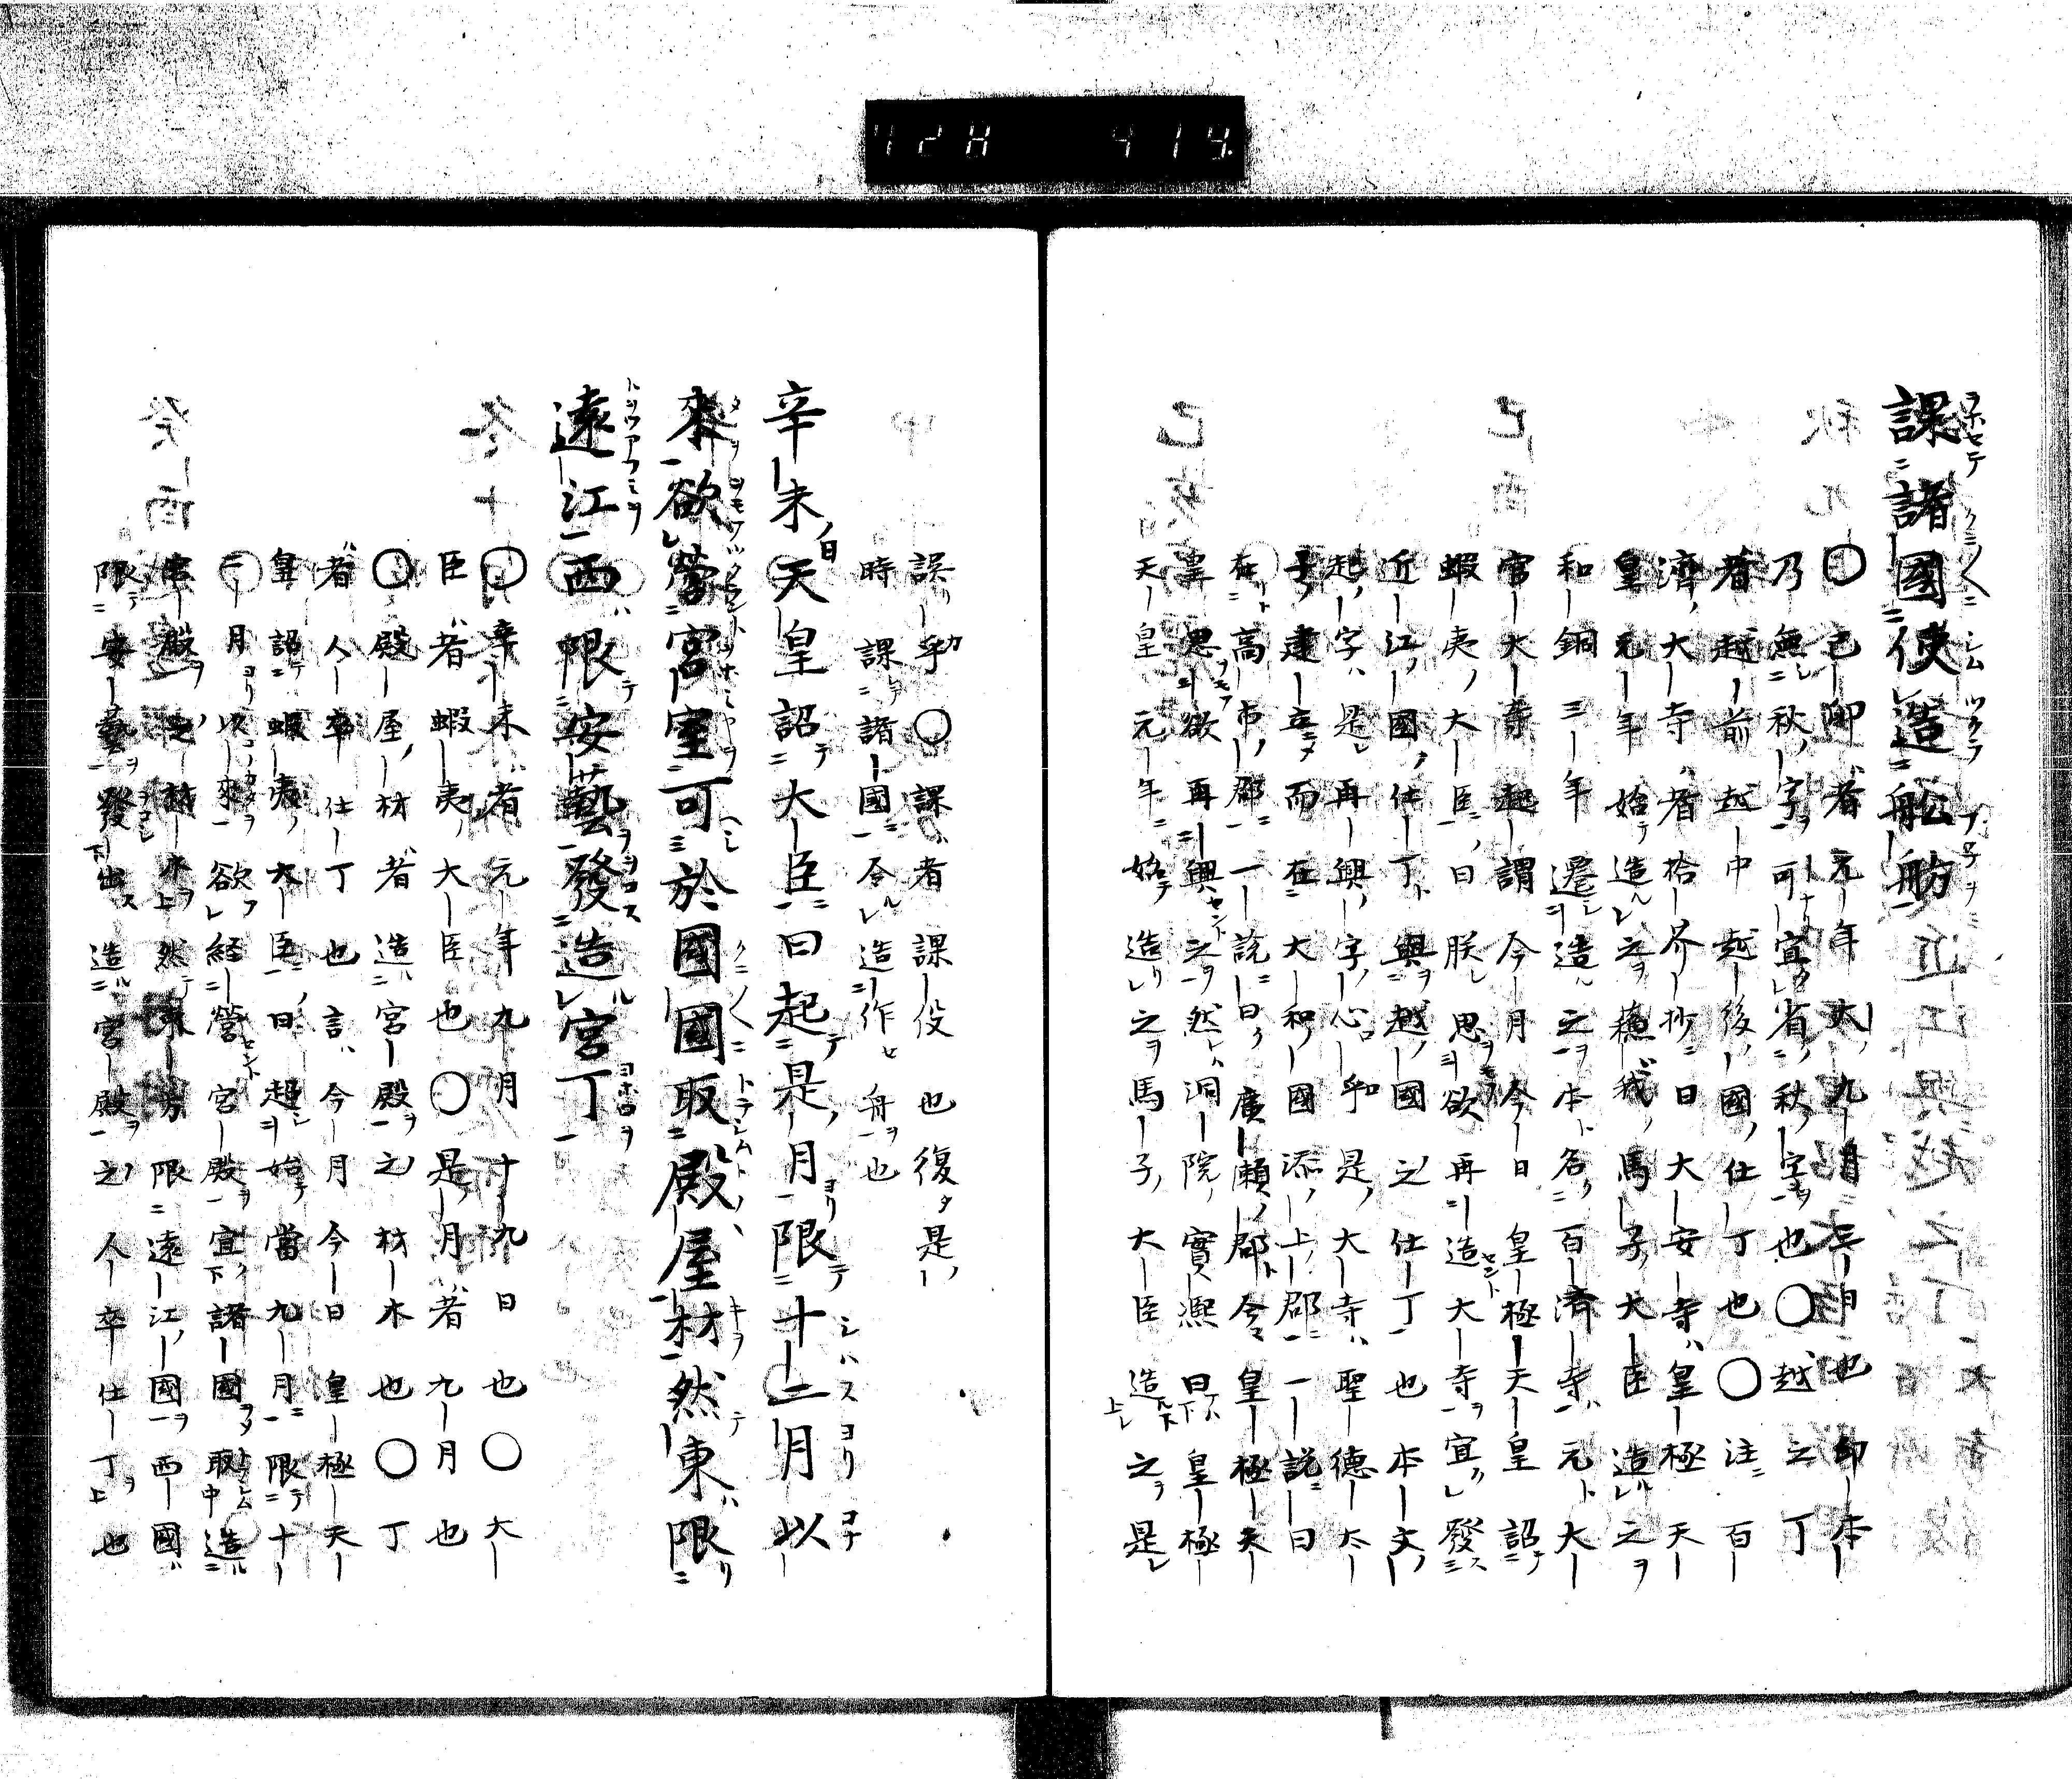 課諸國使造舩舫
〇已卯者元年九月三日也卯本
乃無秋字可宜省秋字也〇越之丁
者越前越中越後國仕丁也〇注百
濟大寺者拾芥抄曰大安寺皇極天
皇元年始造之蘓我馬子大臣造之
和銅三年遷造之本名百濟寺元大
官大寺起謂今月今日皇極天皇詔
蝦夷大臣曰朕思欲再造大寺宜發
近江國仕丁與越國之仕丁也本文
起字是再興字心乎是大寺聖德太
子建立而在大和國添上郡一說曰
在高市郡一說曰廣瀬郡今皇極天
皇思欲再興之然洞院實凞曰皇極
天皇元年始造之馬子大臣造之是
誤乎〇課者課役也復是
時課諸國令造作舟也
辛未天皇詔大臣曰起是月限十二月以
來欲營宮室可於國國取殿屋材然東限
遠江西限安藝發造宮丁
〇辛未者元年九月十九日也〇大
臣者蝦夷大臣也〇是月者九月也
〇殿屋材者造宮殿之材木也〇丁
者人卒仕丁也言今月今日皇極天
皇詔蝦夷大臣曰起始當九月限十
二月以來欲経營宮殿宜諸國取造
宮殿之材木然東方限遠江國西國
限安藝發出造宮殿之人卒仕丁也